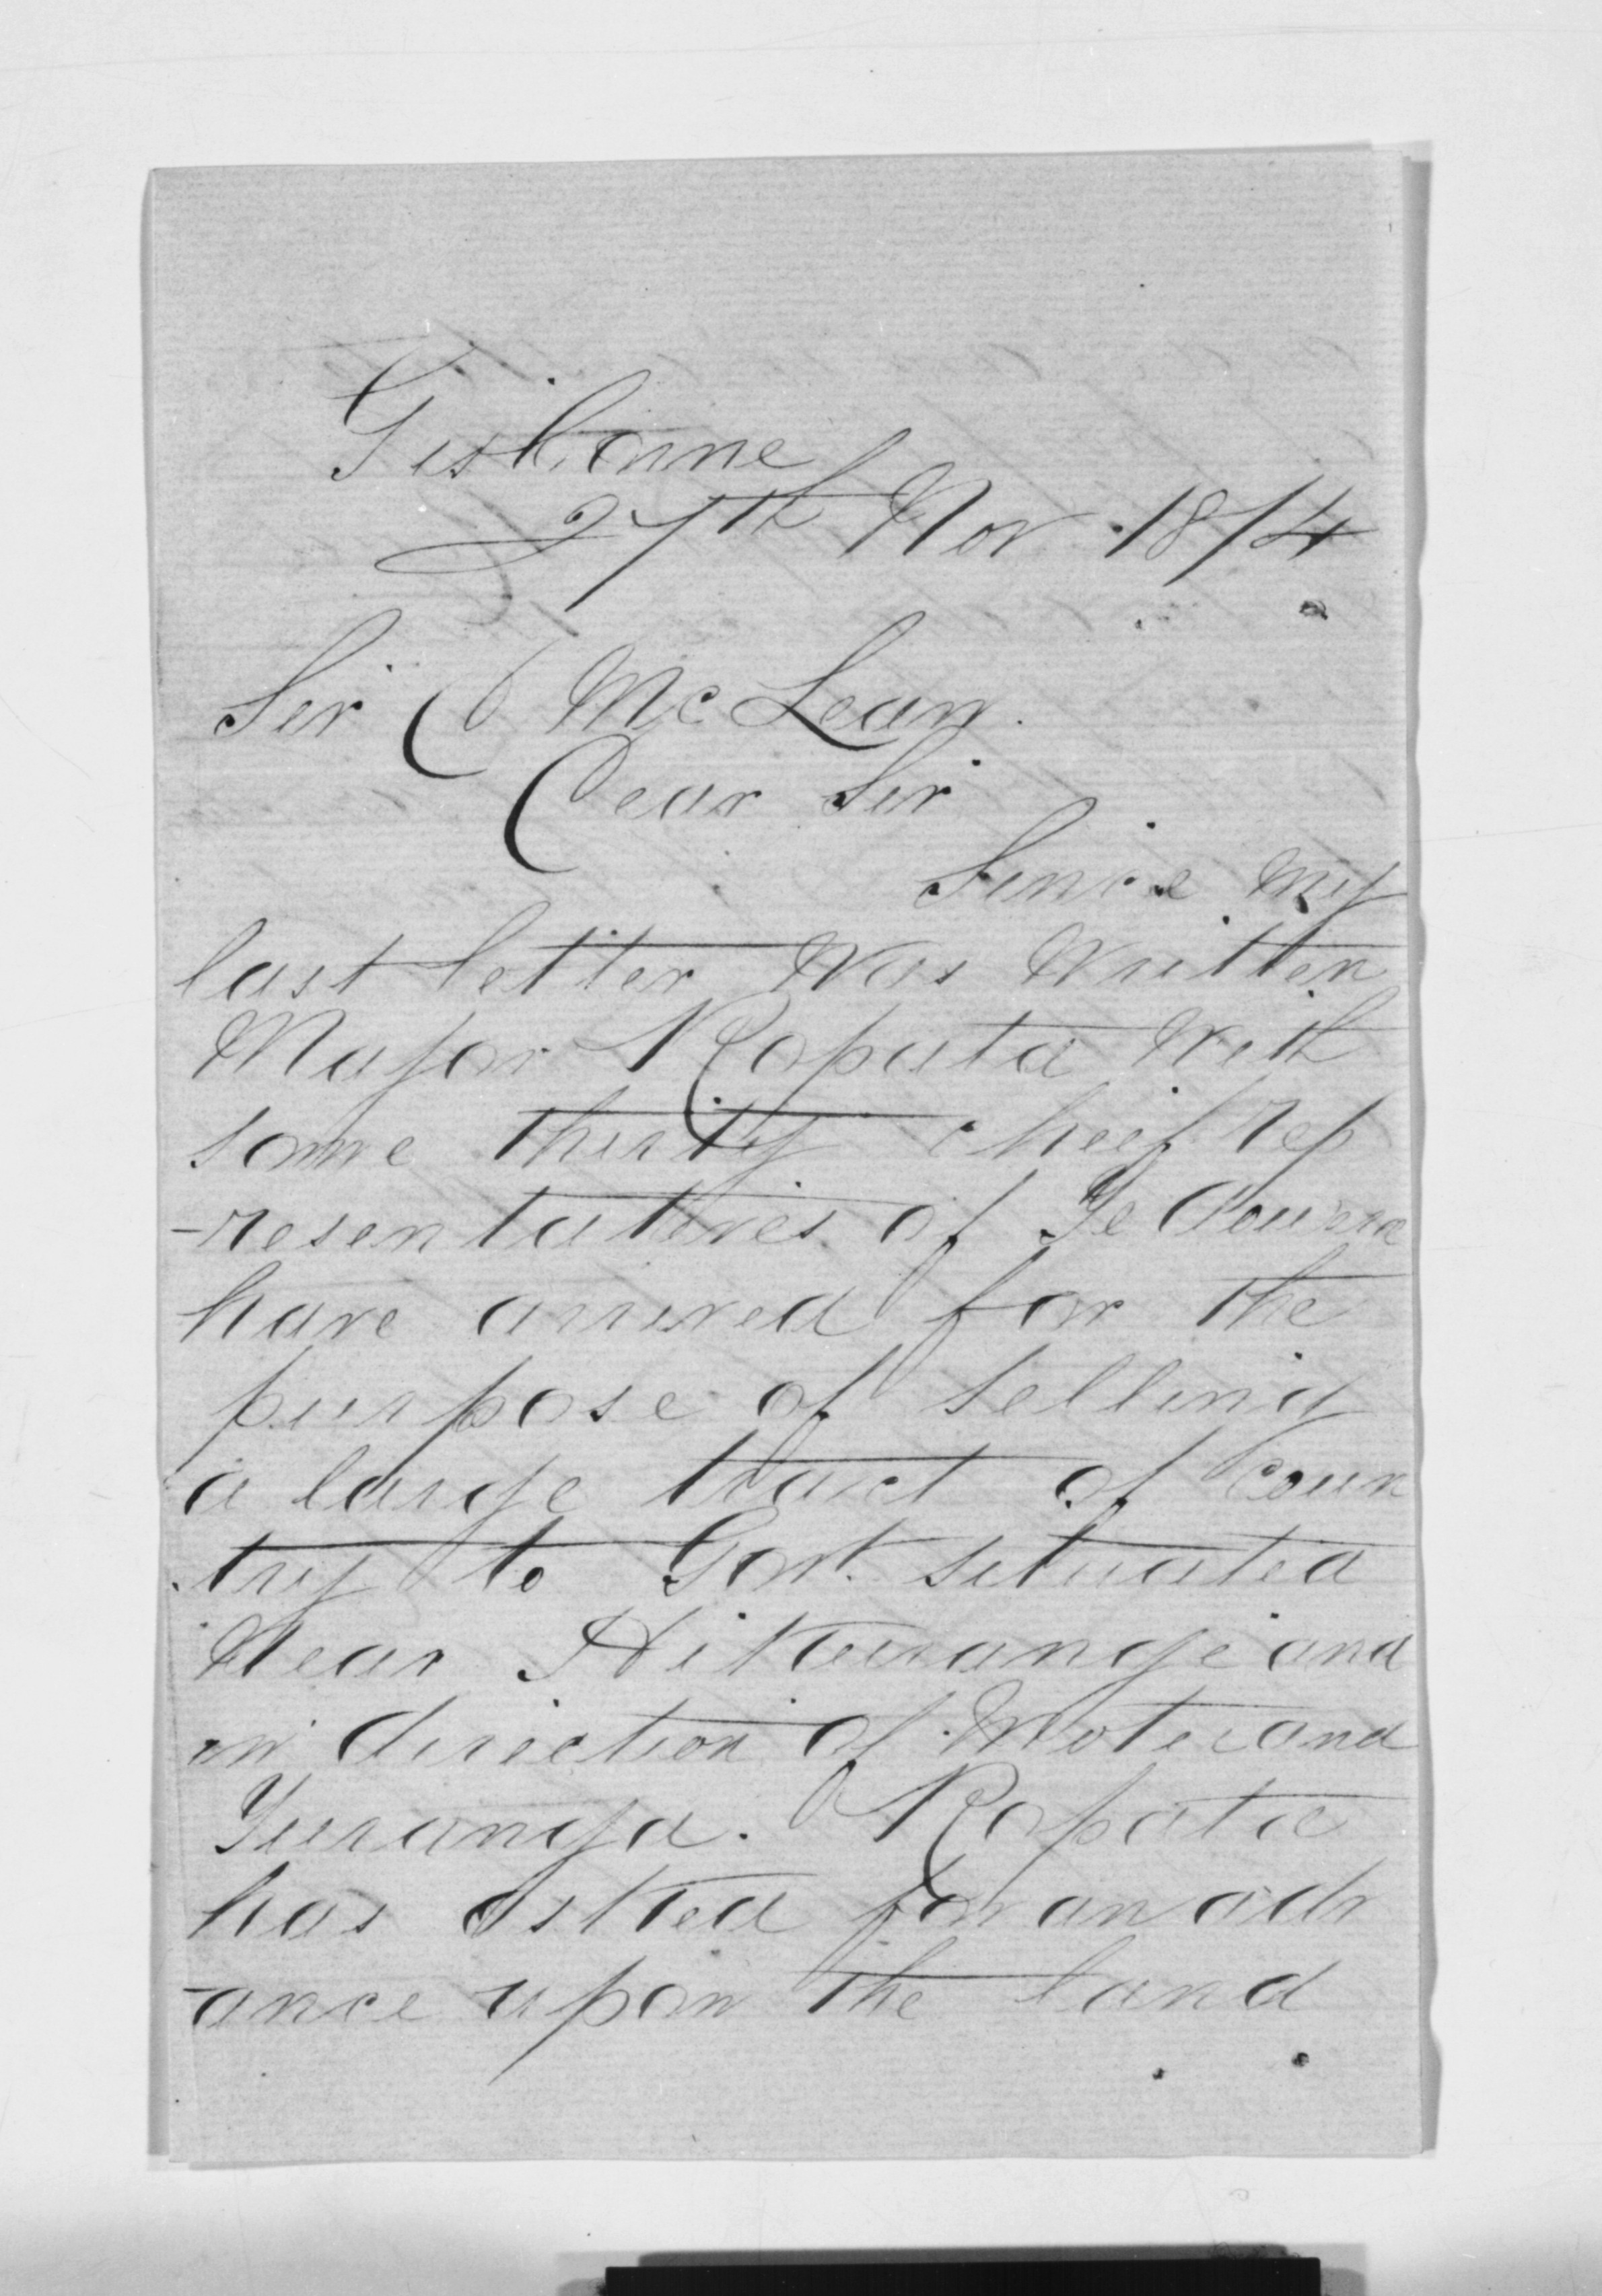 Gisborne
27th Nov 1874
Sir D McLean.
Dear Sir
Since my
last letter was written
Major Ropata with
some thirty cheif rep
-resentatives of Te Aowera
have arrived for the
purpose of selling
a large tract of Coun
try to Govt. situated
Near Hikurangi and
in direction of and
Turanga. Ropata
has asked for an adv
-ance upon the land